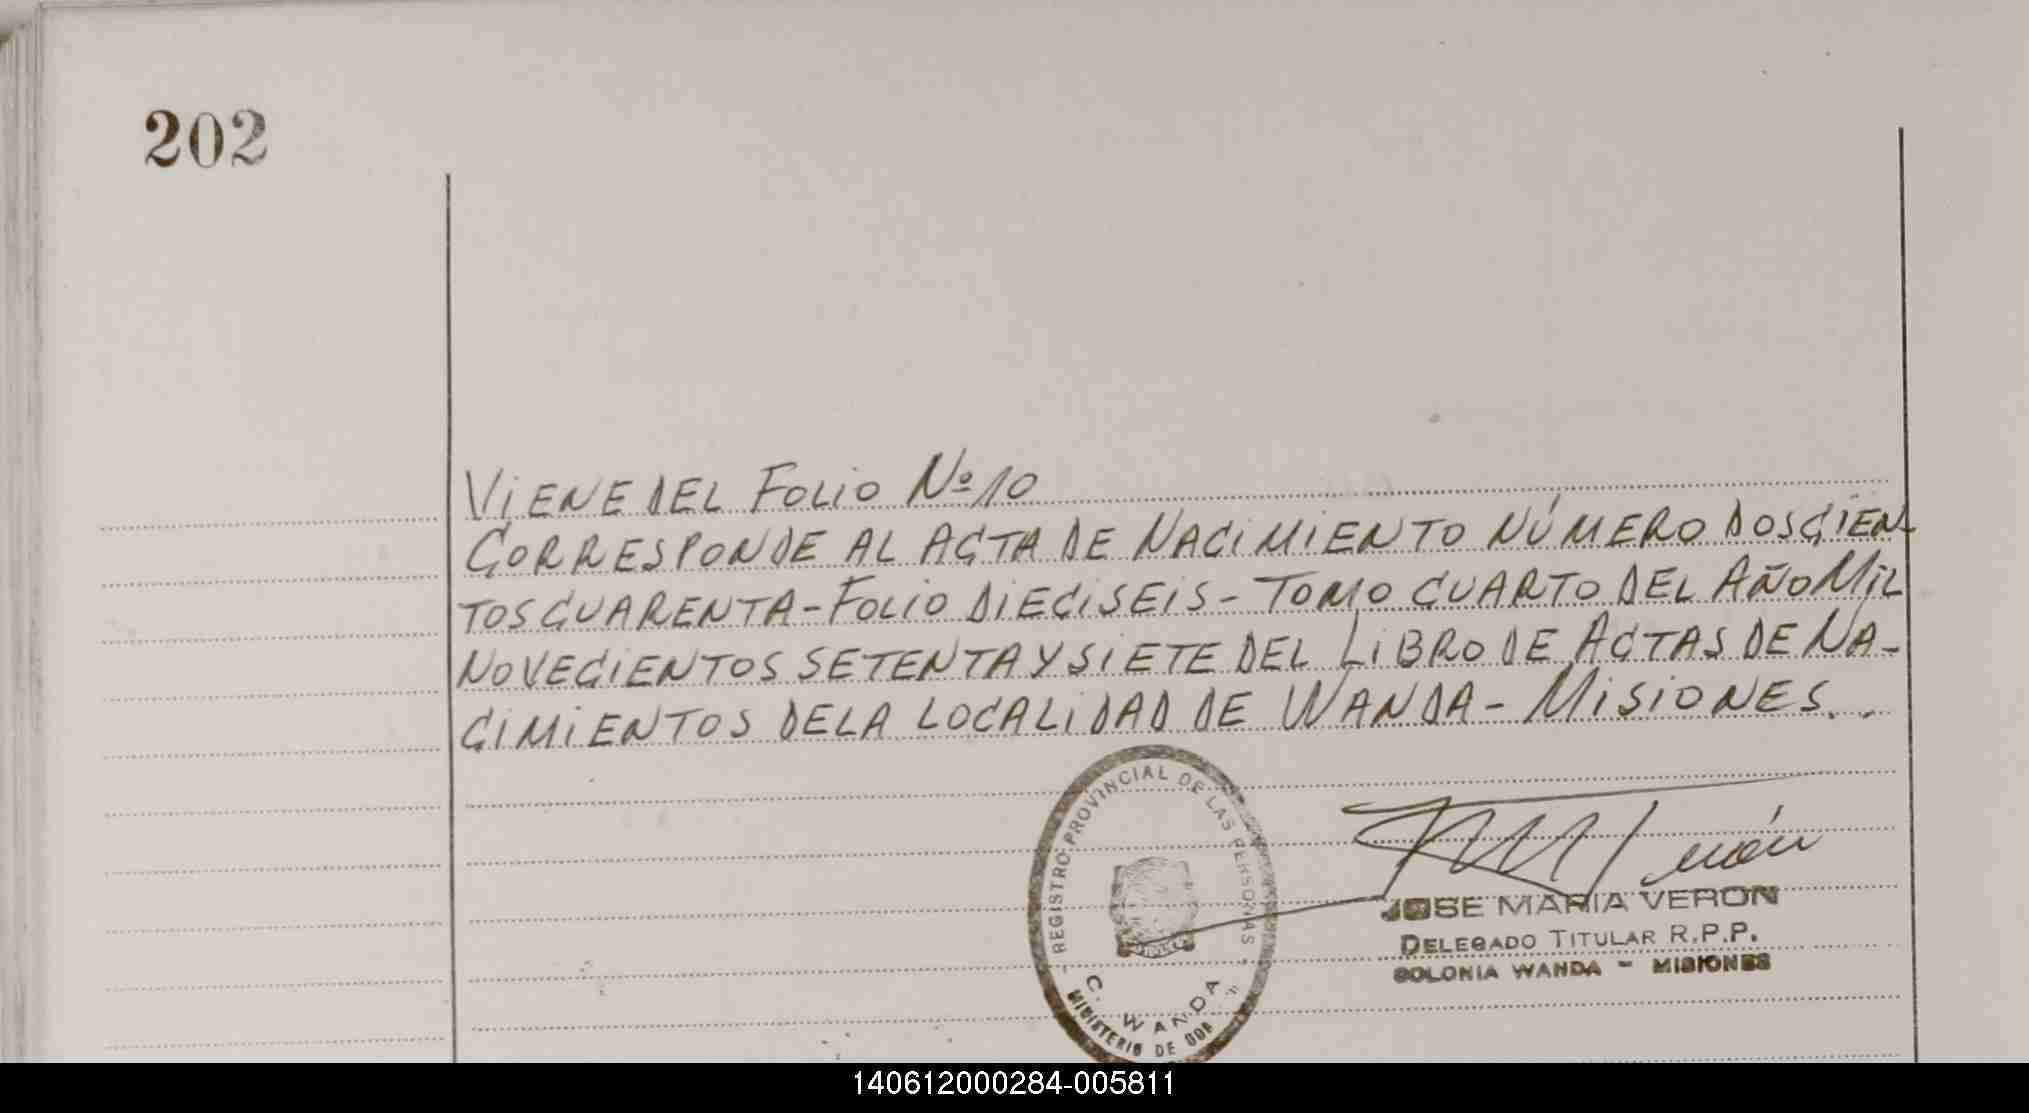 202
VIENE DEL FOLIO Nº 10
CORRESPONDE AL ACTA DE NACIMIENTO NÚMERO DOSCIEN
TOS CUARENTA - FOLIO DIECISEIS - TOMO CUARTO DEL AÑO MIL
NOVECIENTOS SETENTA Y SIETE DEL LIBRO DE ACTAS DE NA-
CIMIENTOS DE LA LOCALIDAD DE WANDA - MISIONES..
REGISTRO PROVINCIAL DE LAS PERSONAS
C. WANDA
MINISTERIO DE GOB.
JOSE MARIA VERON
DELEGADO TITULAR R.P.P.
COLONIA WANDA - MISIONES
140612000284-005811